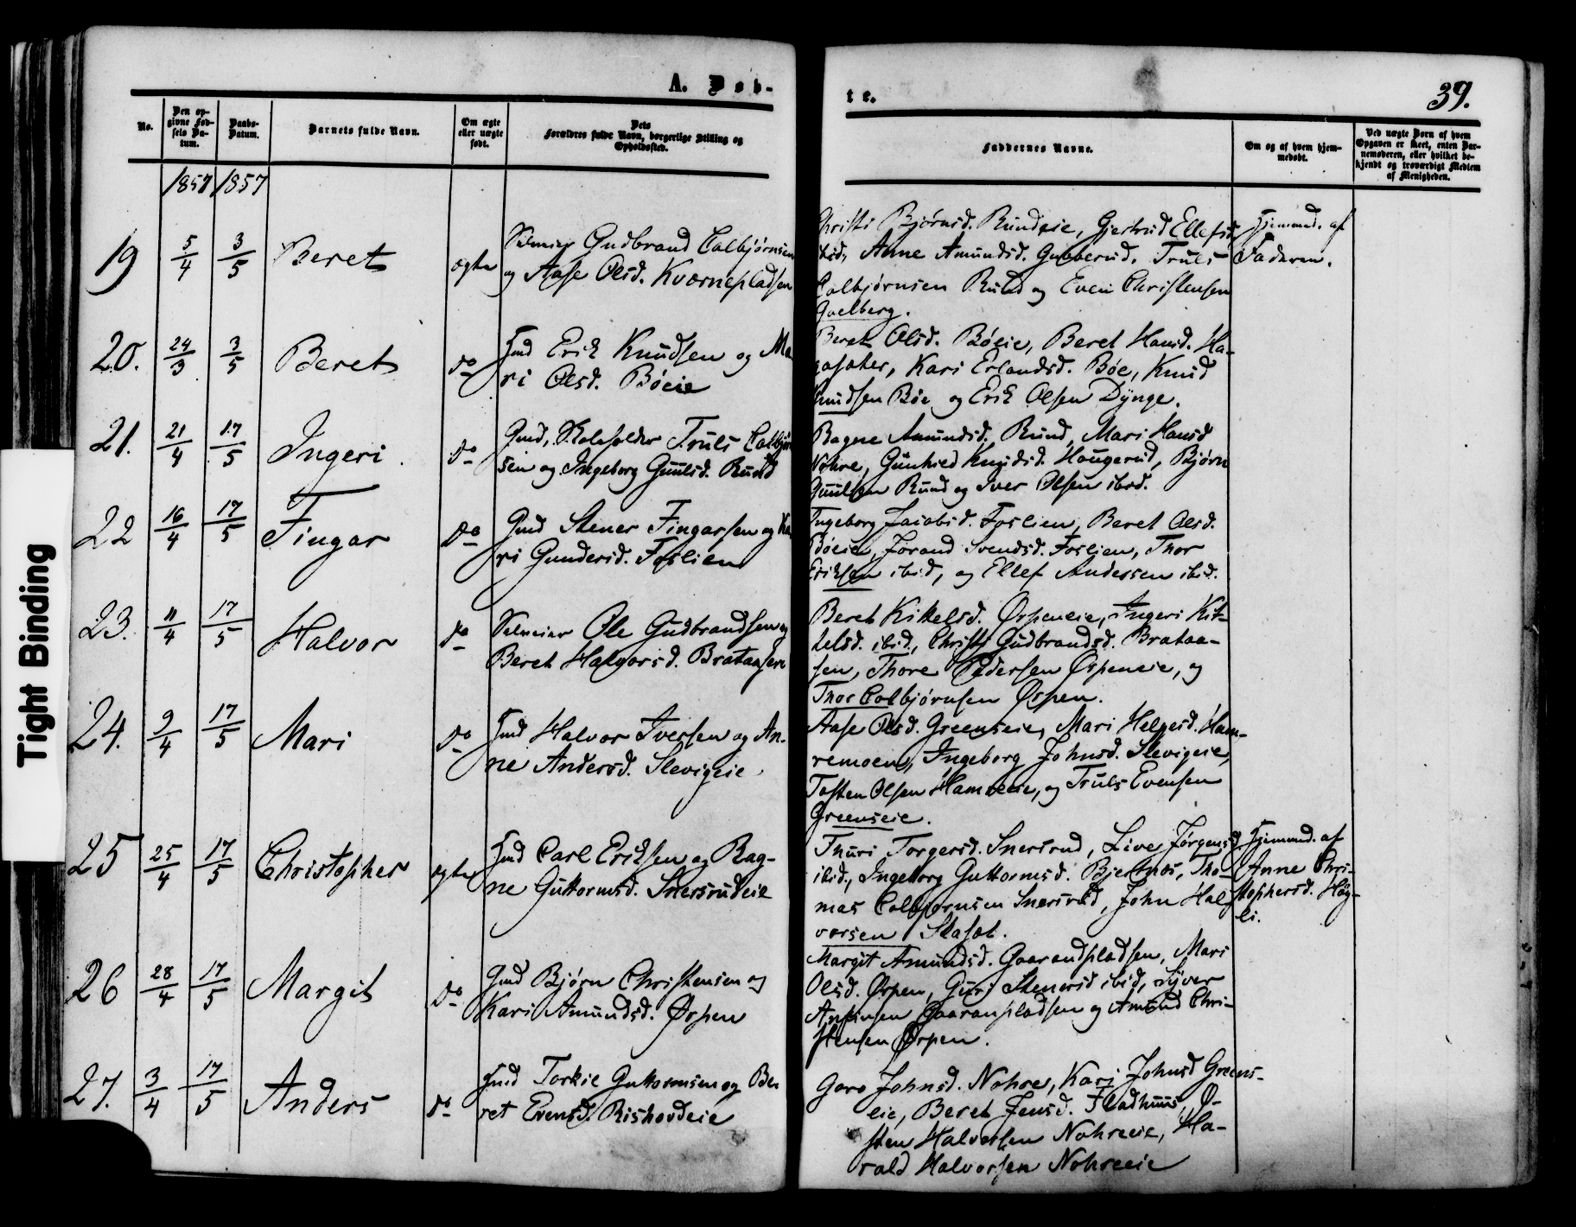 A. Døb-
te.
39.
No.
Den op-
givne Fød-
sels Da-
tum.
Daabs-
Datum.
Barnets fulde Navn.
Om ægte
eller uægte
født.
Dets
Forældres fulde Navn, borgerlige Stilling og
Opholdssted.
Faddernes Navne.
Om og af hvem hjem-
medøbt.
Ved uægte Børn af hvem
Opgaven er skeet, enten Bar-
nemoderen, eller hvilket be-
kjendt og troværdigt Medlem
af Menigheden.
1857 1857
19 5/4 3/5 Beret ægte
Selveier Gudbrand Colbjørnsen
og Aase Olsd. Kværnepladsen
Christi Bjørnsd. Rundeie, Gjertrud Ellefsd.
ibid, Anne Amundsd. Gubberud, Truls
Colbjørnsen Rund og Even Christensen
Gulberg.
Hjemmed. af
Faderen.
20. 24/3 3/5 Beret do
Hmd Erik Knudsen og Ma-
ri Olsd. Bøeie
Beret Olsd. Bøeie, Beret Hansd. Ha-
, Kari Erlandsd. Bøe, Knud
Knudsen Bøe og Erik Olsen Dynge.
21. 21/4 17/5 Ingeri do
Gmd, Skoleholder Truls Colbjørn-
sen og Ingeborg Guulsd. Rund
Ragne Amundsd. Rund, Mari Hansd
Nohre, Gunhild Knudsd. Haugerud, Bjørn
Guulsen Rund og Iver Olsen ibid.
22 16/4 17/5 Fingar do
Gmd Stener Fingarsen og Ka-
ri Gundersd. Foslien
Ingeborg Jacobsd. Foslien, Beret Olsd.
Bøeie, Jorand Svendsd. Foslien, Thor
Eriksen ibid, og Ellef Andersen ibid.
23. 11/4 17/5 Halvor do
Selveier Ole Gudbrandsen og
Beret Halvorsd. Brataasen
Beret Kittelsd. Ørpeneie, Ingeri Kit-
telsd. ibid, Christi Gudbrandsd. Brataa-
sen, Thore Pedersen Ørpeneie, og
Thor Colbjørnsen Ørpen.
24. 9/4 17/5 Mari do
Hmd Halvor Iversen og An-
ne Andersd. Slevigeie.
Aase Olsd. Greenseie, Mari Helgesd. Ham-
remoen, Ingeborg Johnsd. Slevigeie,
Tosten Olsen Hamreeie, og Truls Evensen
Greenseie.
25 25/4 17/5 Christopher ægte
Hmd Carl Eriksen og Rag-
ne Guttormsd. Snersrudeie
Thuri Torgersd. Snersrud, Live Jørgensd.
ibid., Ingeborg Guttormsd. Bjertnes, Tho-
mas Colbjørnsen Snersrud, John Hal-
vorsen Skaset.
Hjemmed. af
Anne Chri-
stophersd. Høg-
li.
26 28/4 17/5 Margit do
Gmd Bjørn Christensen og
Kari Amundsd. Ørpen
Margit Amundsd. Gaarandpladsen, Mari
Olsd. Ørpen, Guri Stenersd ibid, Syver
Gaaranpladsen og Amund Chri-
stensen Ørpen.
27. 3/4 17/5 Anders do
Hmd Torkil Guttormsen og Be-
ret Evensd. Rishovdeie
Goro Johnsd. Nohre, Kari Johnsd Greens-
eie, Beret Jensd. Fladhuus, Ø-
sten Halvorsen Nohreeie, Ha-
rald Halvorsen Nohreeie
Tight Binding